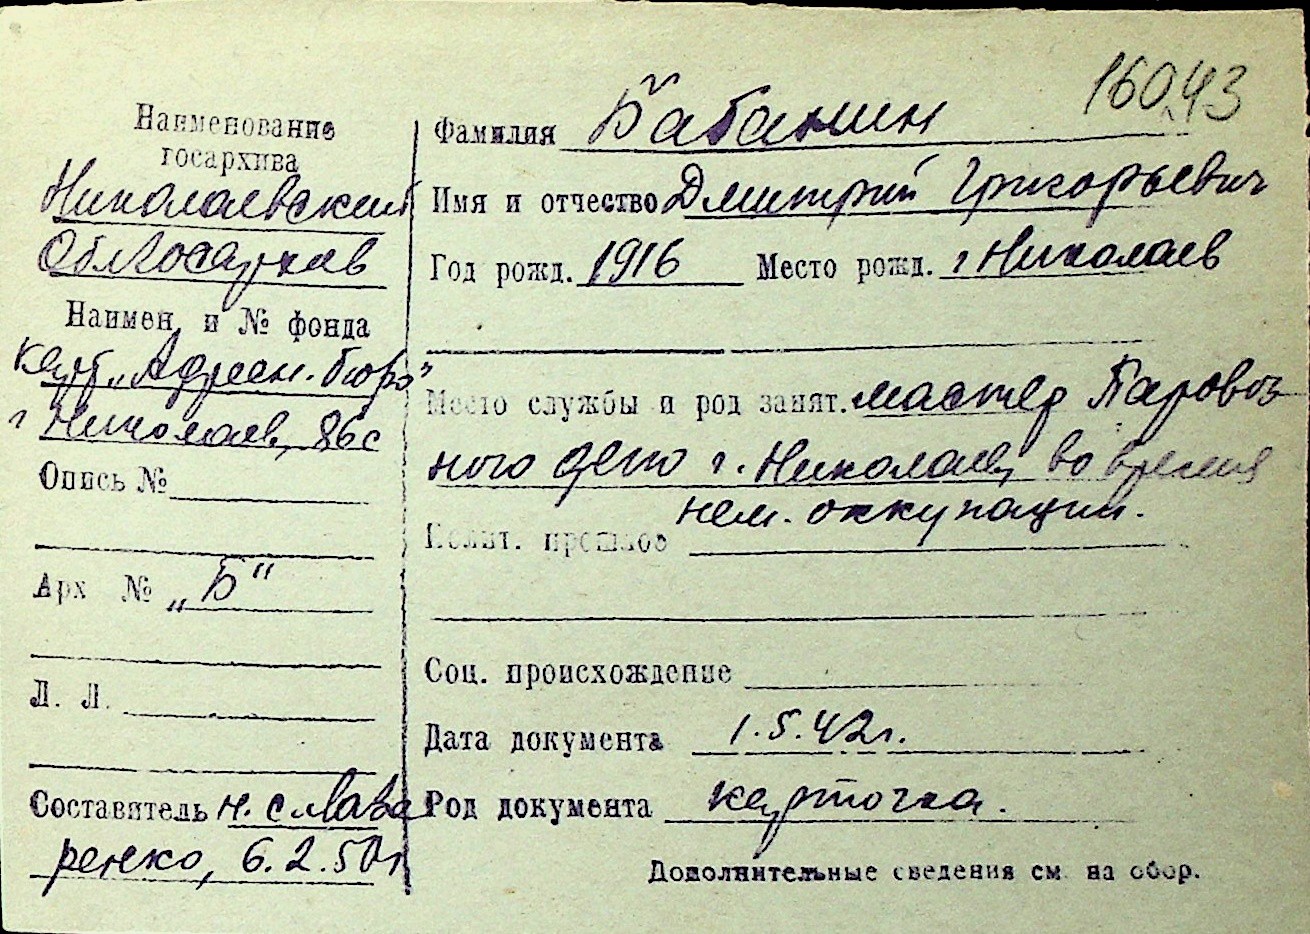 16043
Наименование
госархива
Николаевский
Облгосархив
Наимен. и № фонда
карт. „Адресн. бюро"
г Николаев, 86с
Опись №
Арх № „Б"
Л. Л.
Составитель н. с Лаза
ренко, 6.2.50 г
Фамилия Бабанин
Имя и отчество Дмитрий Григорьевич
Год рожд. 1916 Место рожд. г Николаев
Место службы и род занят. мастер Паровоз
ного депо г. Николаев, во время
нем. оккупации.
Полит. прошлое
Соц. происхождение
Дата документа 1.5.42г.
Род документа карточка.
Дополнительные сведения см. на обор.